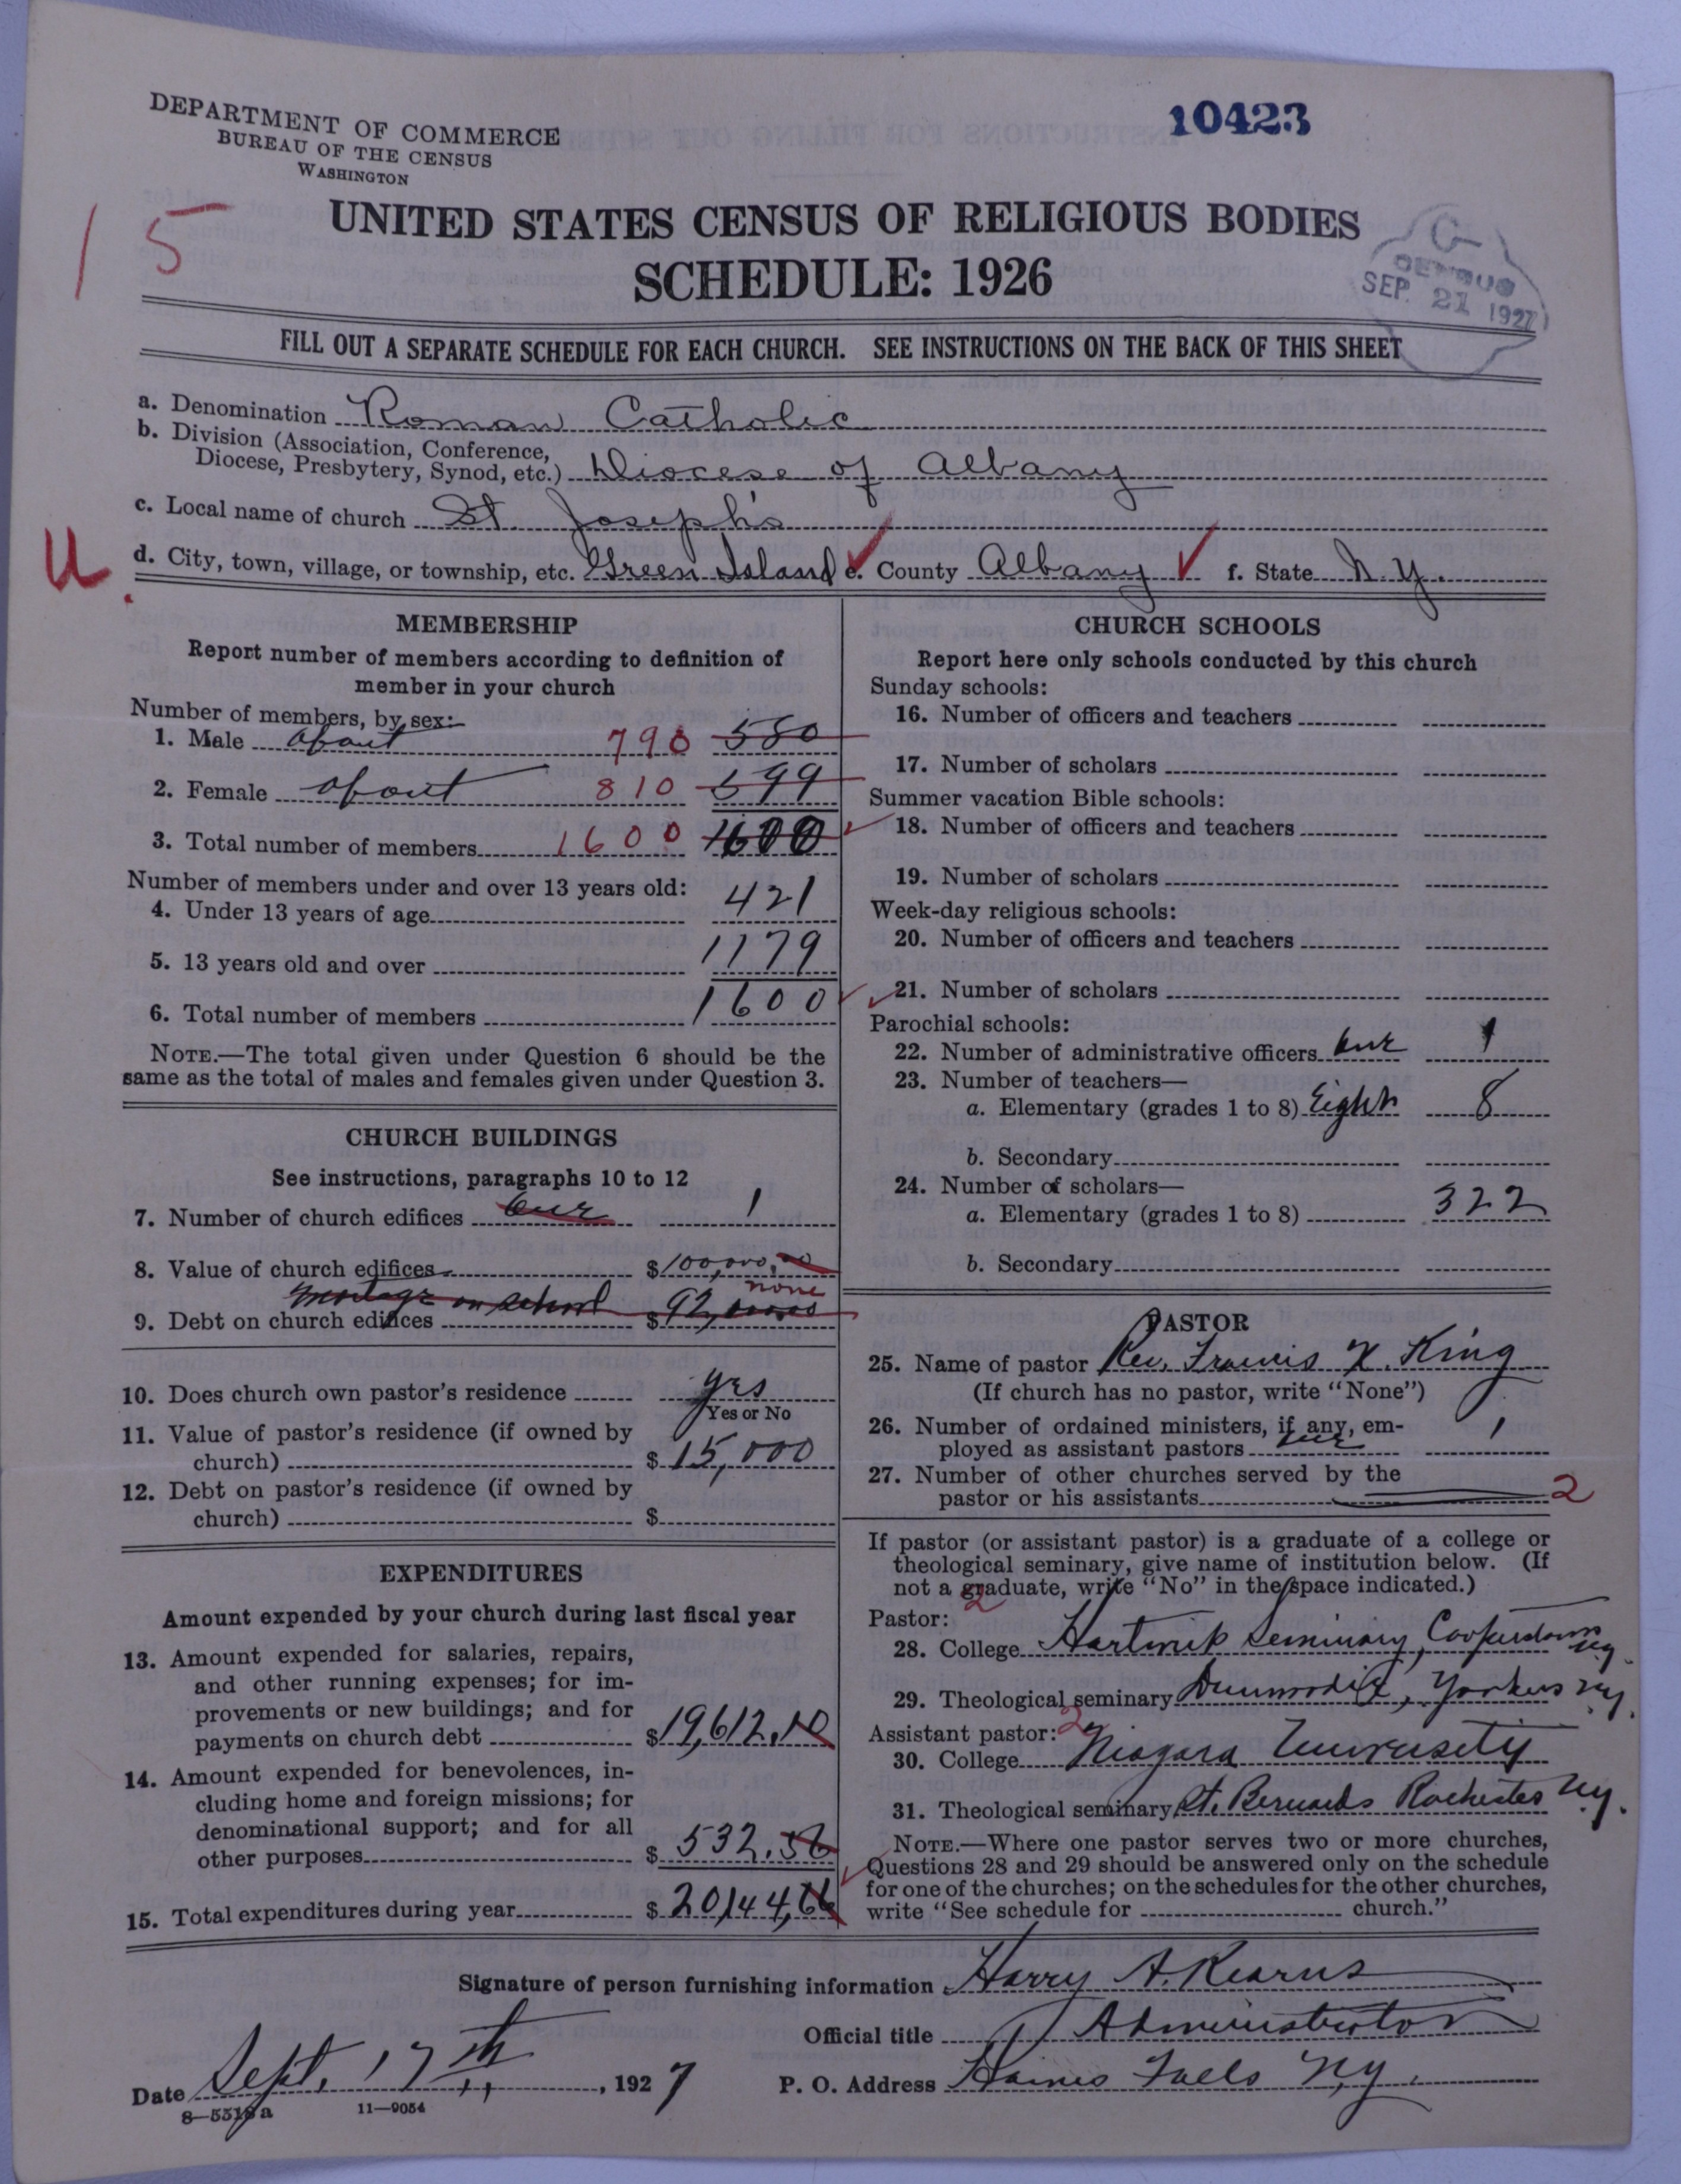 DEPARTMENT OF COMMERCE
BUREAU OF THE CENSUS
WASHINGTON
10423
15
UNITED STATES CENSUS OF RELIGIOUS BODIES
SCHEDULE: 1926
CENSUS
SEP. 21 1927
FILL OUT A SEPARATE SCHEDULE FOR EACH CHURCH. SEE INSTRUCTIONS ON THE BACK OF THIS SHEET
a. Denomination Roman Catholic
b. Division (Association, Conference,
Diocese, Presbytery, Synod, etc.) Diocese of Albany
c. Local name of church St. Joseph's
U.
d. City, town, village, or township, etc. Green Island e. County Albany f. State N.Y.
MEMBERSHIP
Report number of members according to definition of
member in your church
Number of members, by sex:
1. Male about 790 580
2. Female about 810 599
3. Total number of members 1600 1600
Number of members under and over 13 years old:
4. Under 13 years of age 421
5. 13 years old and over 1179
6. Total number of members 1600
NOTE.—The total given under Question 6 should be the
same as the total of males and females given under Question 3.
CHURCH BUILDINGS
See instructions, paragraphs 10 to 12
7. Number of church edifices one 1
8. Value of church edifices $100,000.00
none
mortage on school
9. Debt on church edifices $92,000.00
10. Does church own pastor's residence yes
Yes or No
11. Value of pastor's residence (if owned by
church) $15,000
12. Debt on pastor's residence (if owned by
church) $
EXPENDITURES
Amount expended by your church during last fiscal year
13. Amount expended for salaries, repairs,
and other running expenses; for im-
provements or new buildings; and for
payments on church debt $19,612.10
14. Amount expended for benevolences, in-
cluding home and foreign missions; for
denominational support; and for all
other purposes $532.56
15. Total expenditures during year $20,144.66
CHURCH SCHOOLS
Report here only schools conducted by this church
Sunday schools:
16. Number of officers and teachers
17. Number of scholars
Summer vacation Bible schools:
18. Number of officers and teachers
19. Number of scholars
Week-day religious schools:
20. Number of officers and teachers
21. Number of scholars
Parochial schools:
22. Number of administrative officers one 1
23. Number of teachers—
a. Elementary (grades 1 to 8) Eight 8
b. Secondary
24. Number of scholars—
a. Elementary (grades 1 to 8) 322
b. Secondary
PASTOR
25. Name of pastor Rev. Francis X. King
(If church has no pastor, write "None")
26. Number of ordained ministers, if any, em-
ployed as assistant pastors one 1
27. Number of other churches served by the
pastor or his assistants 2
If pastor (or assistant pastor) is a graduate of a college or
theological seminary, give name of institution below. (If
not a graduate, write "No" in the space indicated.)
Pastor: 2
28. College Hartwick Seminary, Cooperstown N.Y.
29. Theological seminary Dunwoodie, Yonkers N.Y.
Assistant pastor: 2
30. College Niagara University
31. Theological seminary St. Bernards Rochester N.Y.
NOTE.—Where one pastor serves two or more churches,
Questions 28 and 29 should be answered only on the schedule
for one of the churches; on the schedules for the other churches,
write "See schedule for church."
Signature of person furnishing information Harry A. Kearns
Official title Administrator
Date Sept. 17th, 1927 P. O. Address Haines Falls N.Y.
8—5518a 11—9054